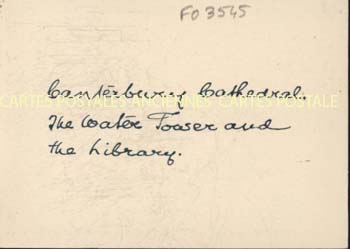 FO 3545
Canterbury Cathedral.
CARTES POSTALES ANCIENNES CARTES POSTALE
The Water Tower and
the Library.